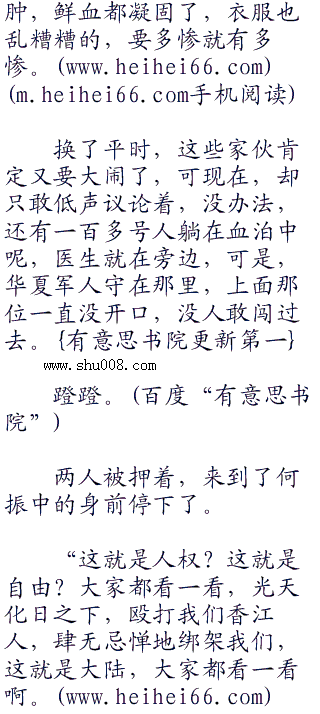 肿，鲜血都凝固了，衣服也
乱糟糟的，要多惨就有多
惨。(www.heihei66.com)
(m.heihei66.com手机阅读)
换了平时，这些家伙肯
定又要大闹了，可现在，却
只敢低声议论着，没办法，
还有一百多号人躺在血泊中
呢，医生就在旁边，可是，
华夏军人守在那里，上面那
位一直没开口，没人敢闯过
去。{有意思书院更新第一}
www.shu008.com
蹬蹬。(百度“有意思书
院”)
两人被押着，来到了何
振中的身前停下了。
“这就是人权？这就是
自由？大家都看一看，光天
化日之下，殴打我们香江
人，肆无忌惮地绑架我们，
这就是大陆，大家都看一看
啊。(www.heihei66.com)